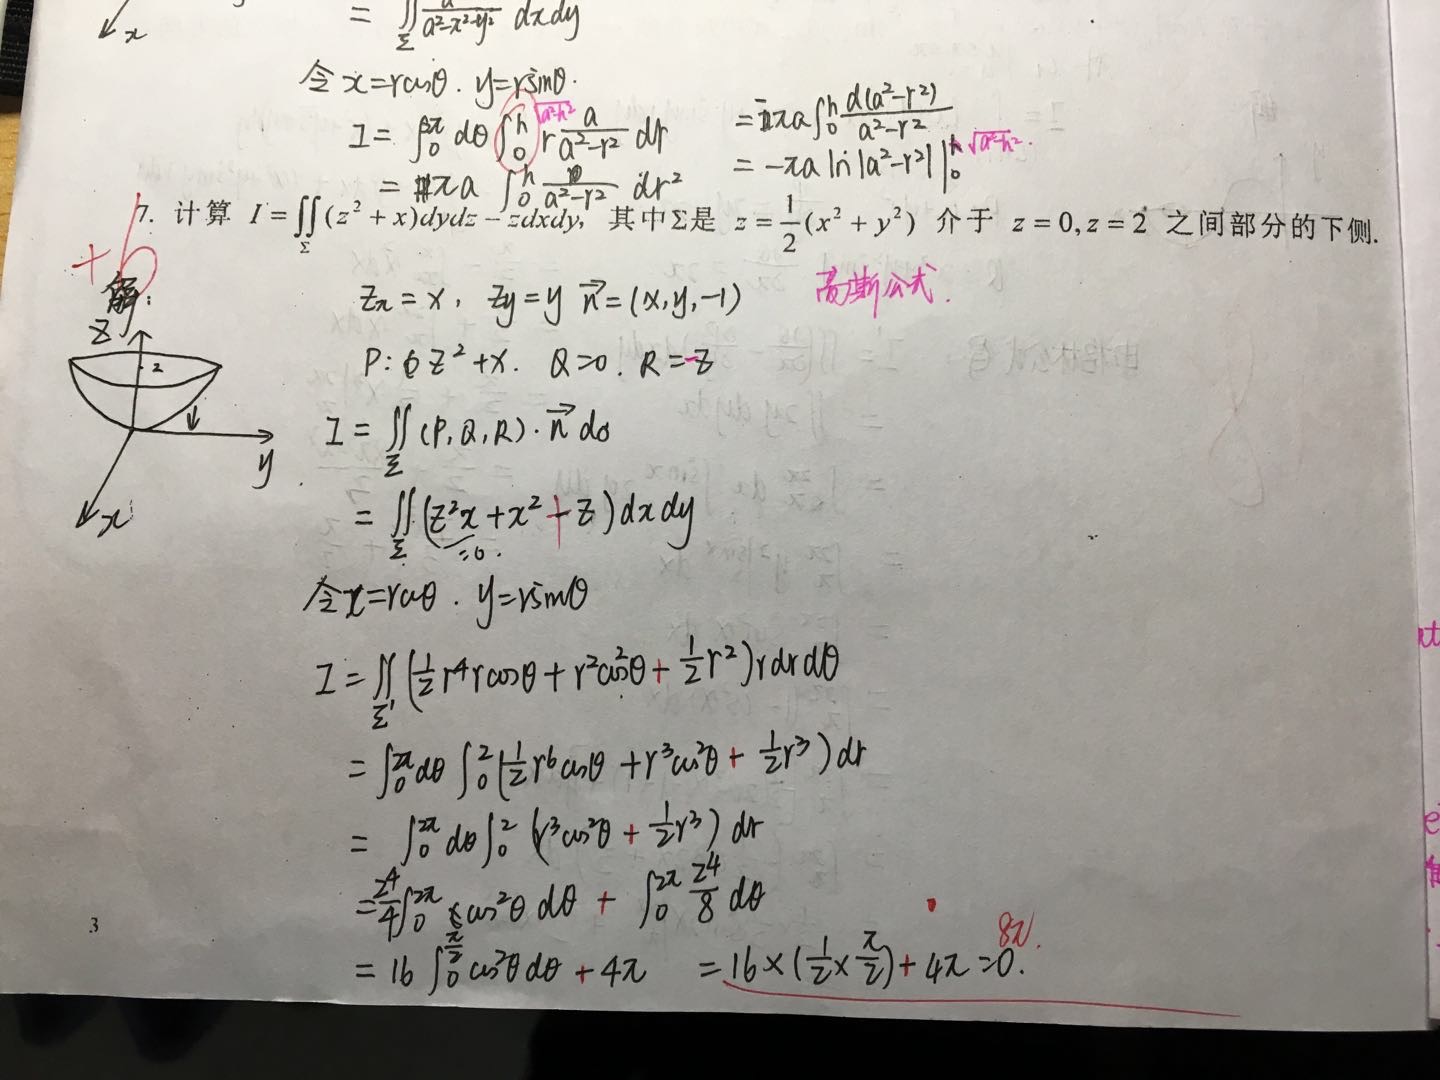 = ∬_Σ a/(a²-x²-y²) dxdy
x
令 x=rcosθ. y=rsinθ.
I = ∫₀^{2π} dθ ∫₀^h r a/(a²-r²) dr √(a²-h²)
= πa ∫₀^h 1/(a²-r²) dr²
= -πa ∫₀^h d(a²-r²)/(a²-r²)
= -πa ln|a²-r²| |₀^h √(a²-h²).
7. 计算 I = ∬_Σ (z² + x)dydz - zdxdy, 其中Σ是 z = 1/2 (x² + y²) 介于 z = 0, z = 2 之间部分的下侧.
+6
解:
z_x = x, z_y = y n⃗ = (x, y, -1) 高斯公式.
z
2
y
x
P: z²+x. Q=0. R=-z
I = ∬_Σ (P, Q, R)·n⃗ dσ
= ∬_Σ (z²x + x² + z) dxdy
=0.
令 x=rcosθ. y=rsinθ
I = ∬_Σ' (1/2 r⁴rcosθ + r²cos²θ + 1/2 r²) r dr dθ
= ∫₀^{2π} dθ ∫₀² (1/2 r⁶cosθ + r³cos²θ + 1/2 r³) dr
= ∫₀^{2π} dθ ∫₀² (r³cos²θ + 1/2 r³) dr
= 2⁴/4 ∫₀^{2π} cos²θ dθ + ∫₀^{2π} 2⁴/8 dθ
= 16 ∫₀^{π/2} cos²θ dθ + 4π = 16×(1/2 × π/2) + 4π = 0. 8π.
3